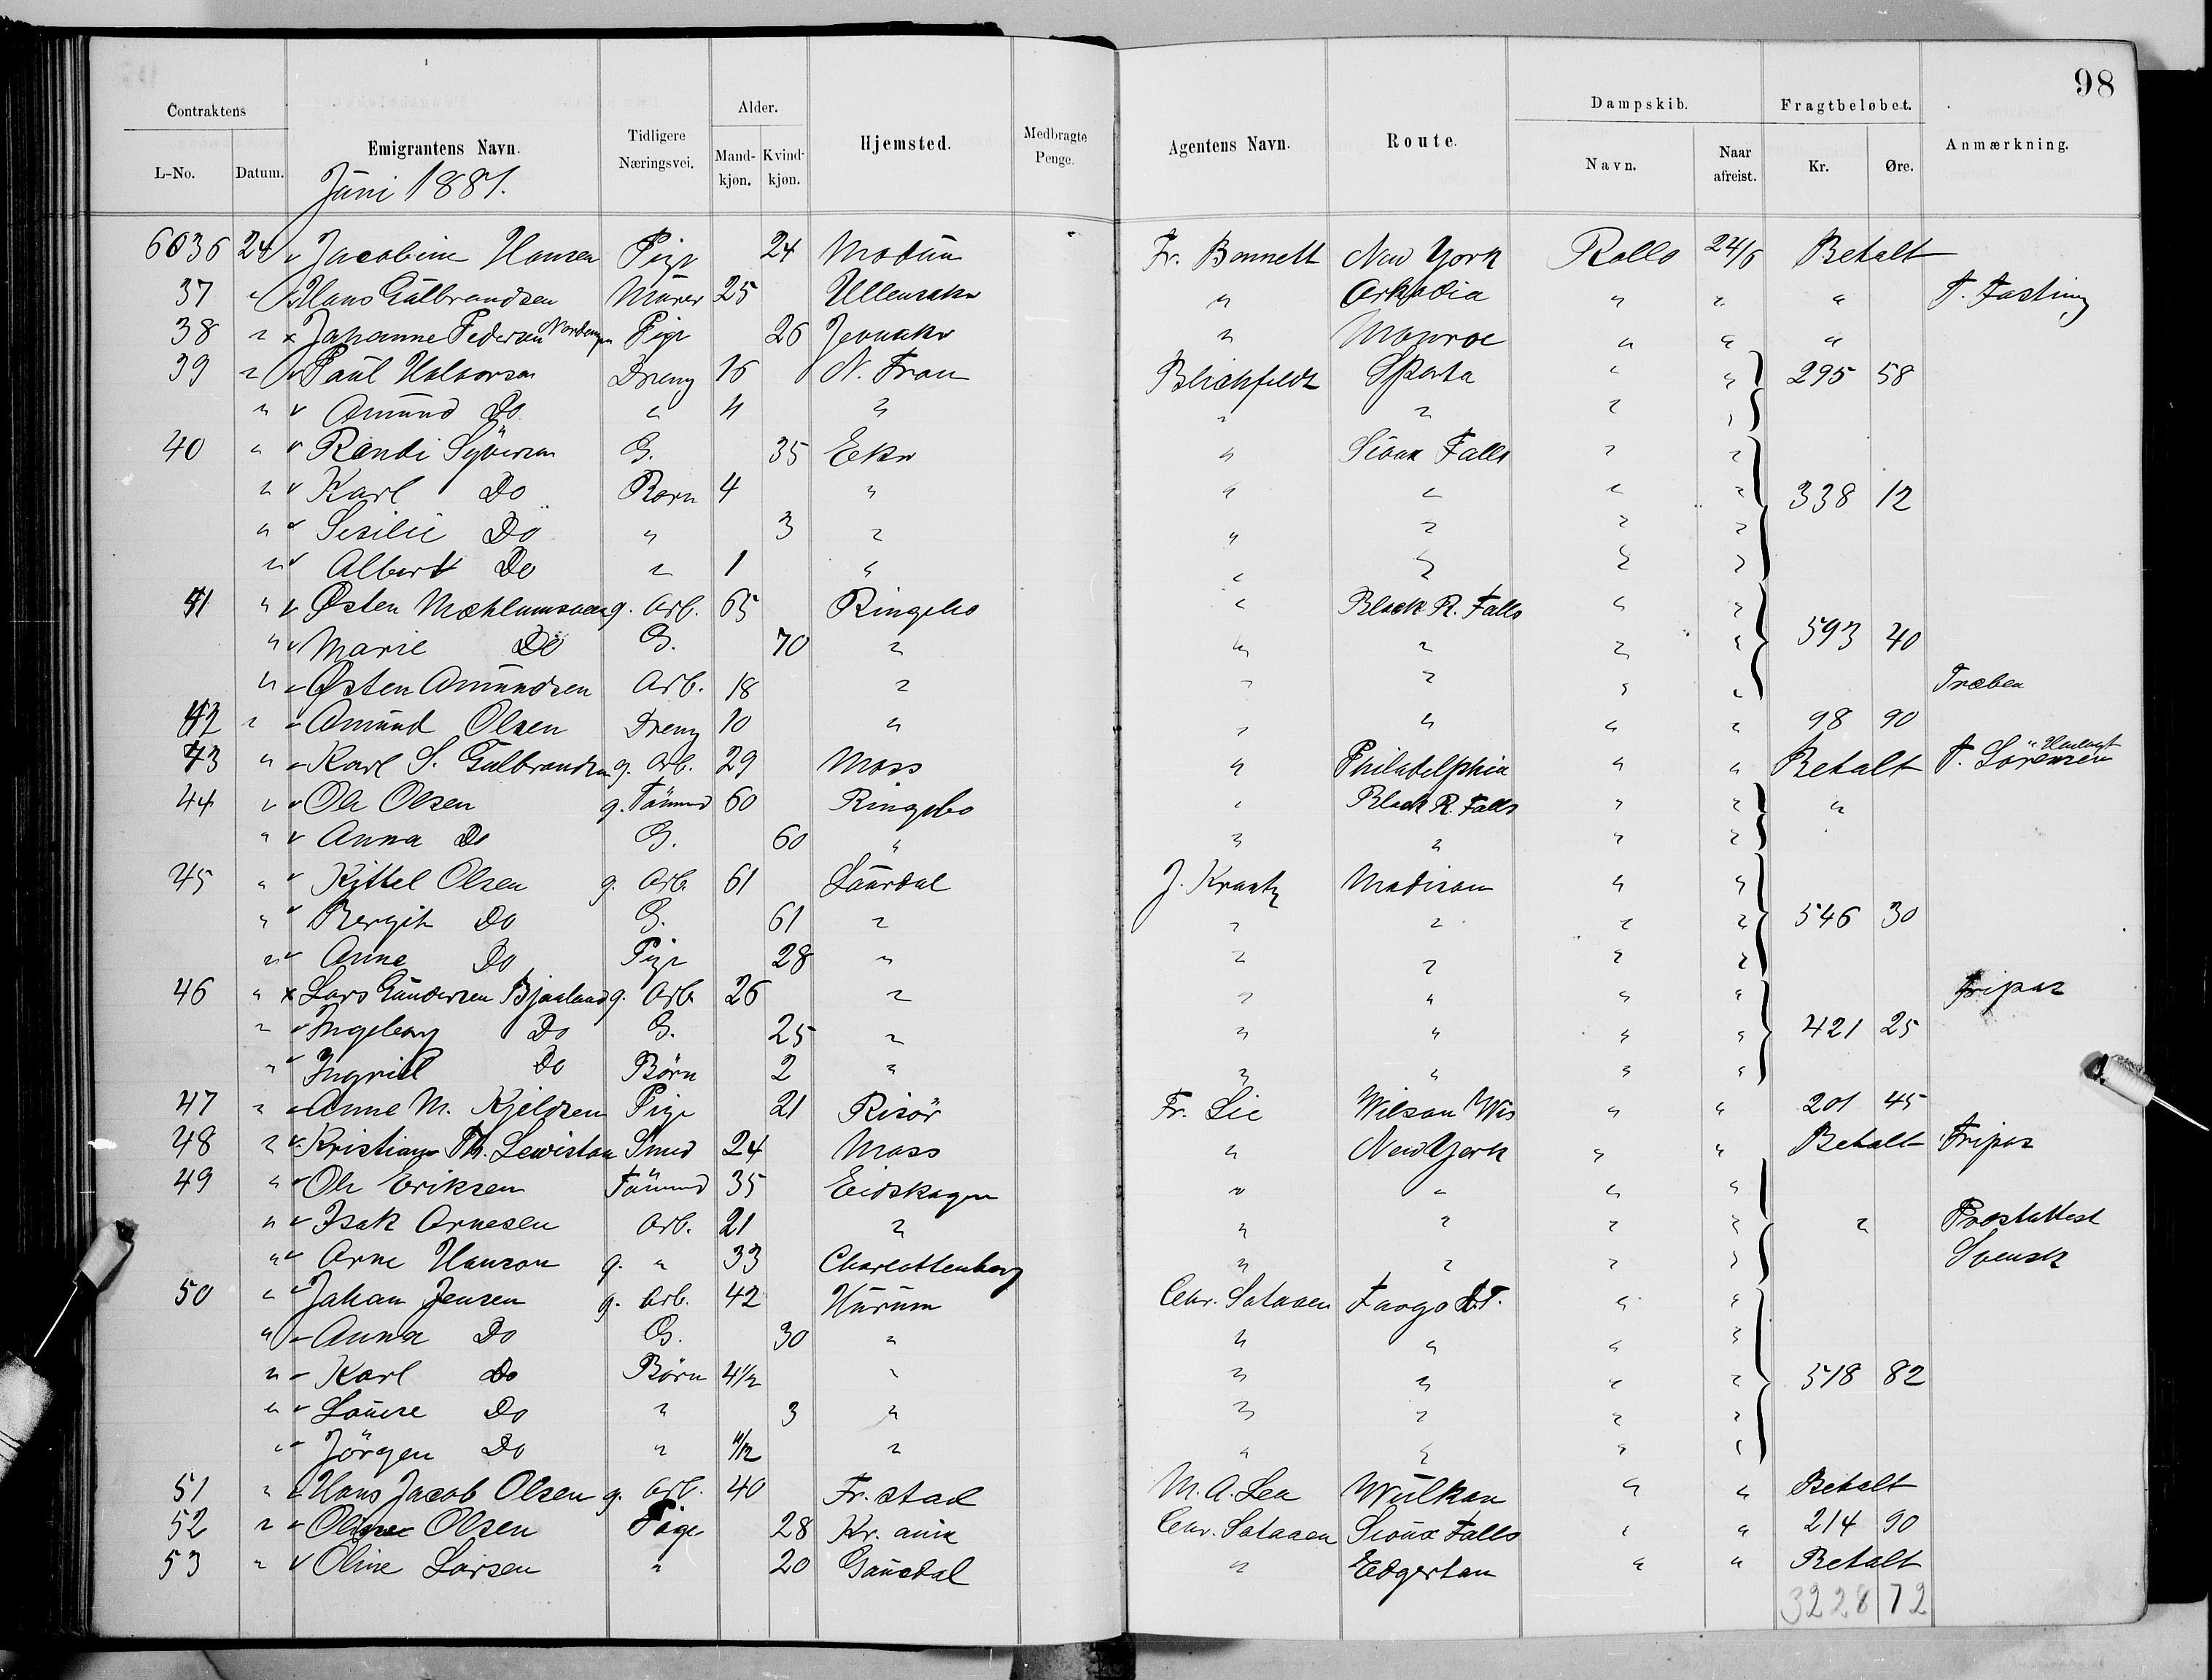 98
Contraktens Emigrantens Navn. Tidligere Næringsvei. Alder. Hjemsted. Medbragte Penge. Agentens Navn. Route. Dampskib. Fragtbeløbet. Anmærkning.
L-No. Datum. Mandkjøn. Kvindkjøn. Navn. Naar afreist. Kr. Øre.
Juni 1881.
6036 24 v Jacobine Hansen Pige 24 Modum Fr. Bennett New York Rollo 24/6 Betalt
37 " v Hans Gulbrandsen Murer 25 Ullensaker " Arkadia " " " T. Fastning
38 " x Johanne Pedersen Pige 26 Jevnaker " Monroe " " "
39 " v Paul Halvorsen Dreng 16 N. Fron Blichfeldt Sparta " " 295 58
" v Amund Do " 11 " " " " "
40 " v Randi Syversen G. 35 Eker " Sioux Falls " "
" v Karl Do Barn 4 " " " " " 338 12
" v Sesilie Do " 3 " " " " "
" v Albert Do " 1 " " " " "
41 " v Østen Mæhlumsveen g. Arb. 65 Ringebo " Black R. Falls " "
" v Marie Do G. 70 " " " " " 593 40
" v Østen Amundsen Arb. 18 " " " " " Træben
42 " v Amund Olsen Dreng 10 " " " " " 98 90
43 " v Karl S. Gulbrandsen g. Arb. 29 Moss " Philadelphia " " Betalt T. Sörensen
44 " v Ole Olsen g. Tömmd 60 Ringebo " Black R. Falls " " "
" v Anna Do G. 60 " " " " "
45 " v Kittel Olsen g. Arb 61 Laurdal J. Krantz Madison " "
" v Bergit Do G. 61 " " " " " 546 30
" v Anne Do Pige 28 " " " " "
46 " x Lars Gundersen Bjaaland g. Arb. 26 " " " " " Fripas
" v Ingeborg Do G. 25 " " " " " 421 25
" v Ingrid Do Börn 2 " " " " "
47 " v Anne M. Kjeldsen Pige 21 Risör Fr. Lie Wilson Wis " " 201 45
48 " v Kristian Th. Lewiston Smed 24 Moss " New York " " Betalt Fripas
49 " v Ole Eriksen Tömmd 35 Eidskogen " " " "
" v Isak Arnesen Arb. 21 " " " " " " Præstattest
" v Arne Hanson g. " 33 Charlottenberg " " " " Svensk
50 " v Johan Jensen g. Arb. 42 Hurum Chr. Sataaen Fargo D.T. " "
" v Anna Do G. 30 " " " " "
" v Karl Do Börn 4 1/2 " " " " " 518 82
" v Louise Do " 3 " " " " "
" v Jörgen Do " 11/12 " " " " "
51 " v Hans Jacob Olsen g. Arb. 40 Fr.stad M.A. Lea Wulkan " " Betalt
52 " v Oline Olsen Pige 28 Kr.ania Chr. Sataaen Sioux Falls " " 214 90
53 " v Oline Larsen " 20 Gausdal " Edgerton " " Betalt
3228 72